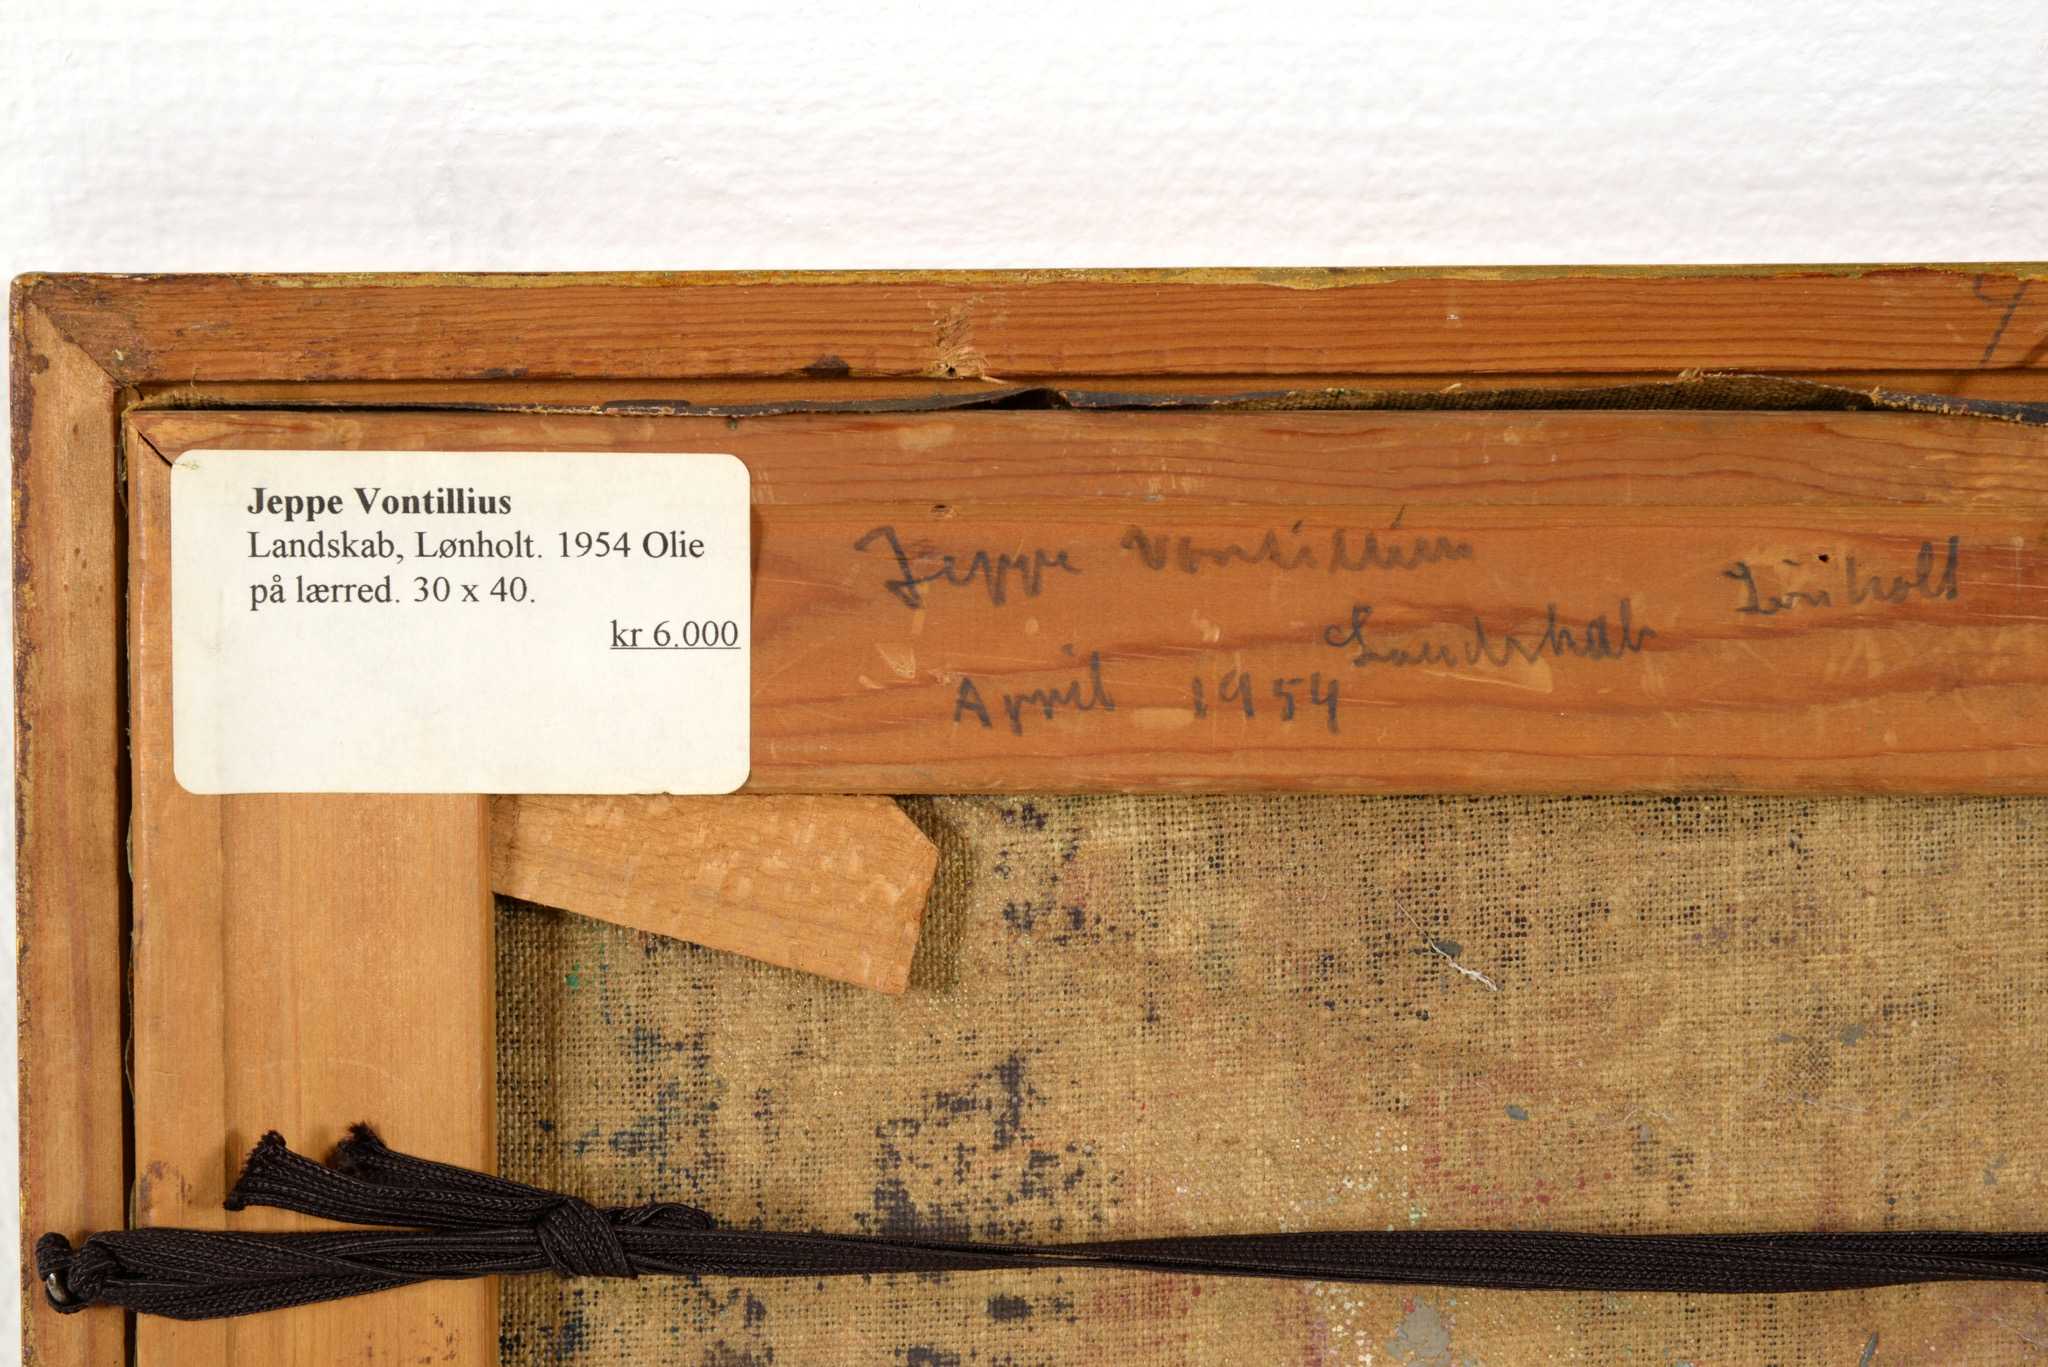 Jeppe Vontillius
Landskab, Lønholt. 1954 Olie
på lærred. 30 x 40.
kr 6.000
Jeppe Vontillius
Landskab Lönholt
April 1954